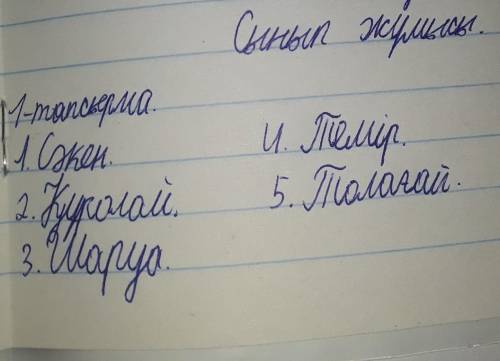 Сынып жұмысы.
1-тапсырма.
1. Әжен.
2. Құралай.
3. Шаруа.
4. Темір.
5. Толағай.